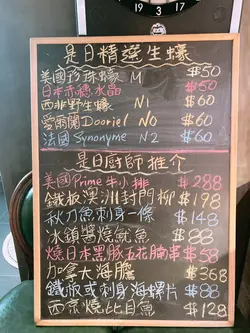 是日精選生蠔
美國珍珠蠔 M $50
日本赤穗水晶 $50
西非野生蠔 N1 $60
愛爾蘭Dooriel N0 $60
法國Synonyme N2 $60
是日廚師推介
美國Prime牛小排 $288
鐵板澳洲封門柳 $198
秋刀魚刺身一條 $148
冰鎮醬燒魷魚 $88
燒日本黑豚五花腩串 $58
加拿大海膽 $368
鐵板或刺身海螺片 $88
西京燒比目魚 $128